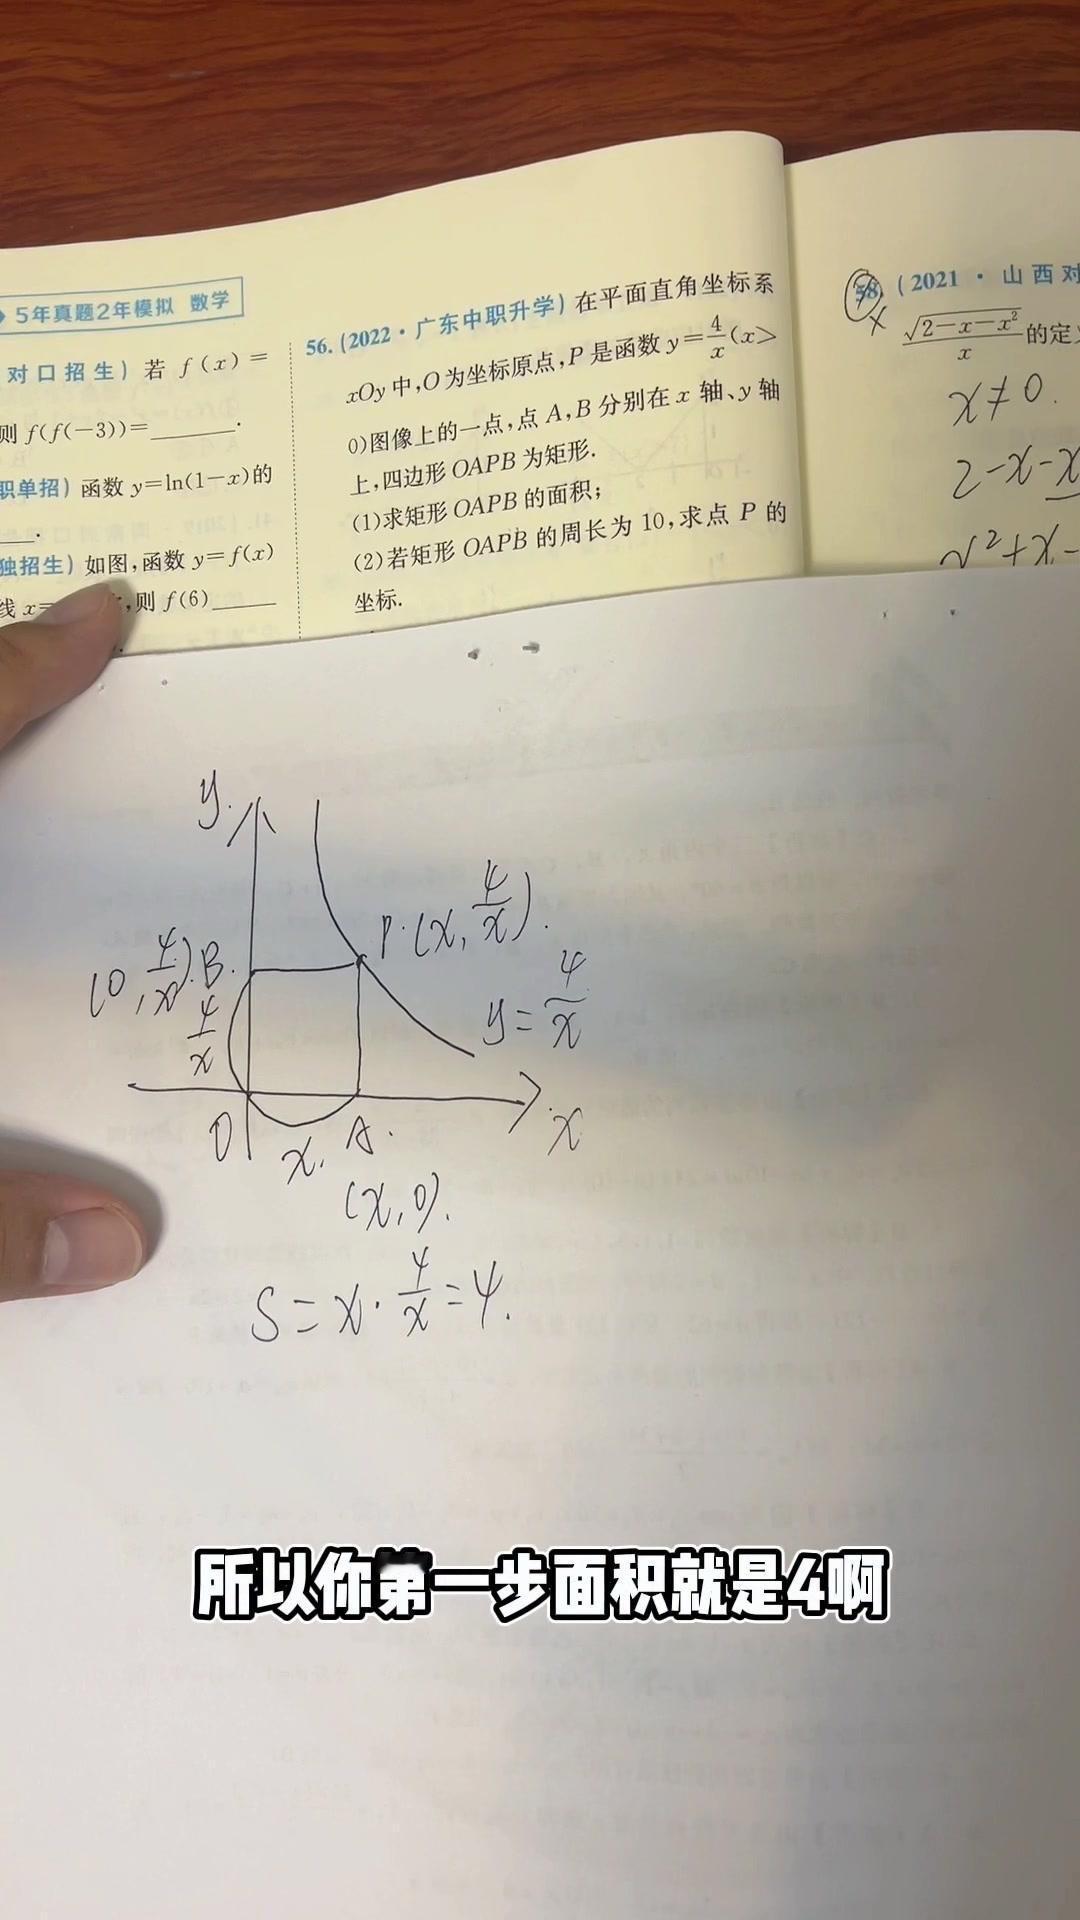 5年真题2年模拟 数学
对口招生) 若 f(x)=
则 f(f(-3))=______.
职单招) 函数 y=ln(1-x)的
______.
独招生) 如图,函数 y=f(x)
线 x=
,则 f(6)______
56. (2022·广东中职升学) 在平面直角坐标系
xOy 中,O 为坐标原点,P 是函数 y=4/x(x>
0)图像上的一点,点 A,B 分别在 x 轴、y 轴
上,四边形 OAPB 为矩形.
(1)求矩形 OAPB 的面积;
(2)若矩形 OAPB 的周长为 10,求点 P 的
坐标.
58. (2021·山西对
√(2-x-x²)/x 的定义
x≠0.
2-x-x
x²+x-
y
P(x, 4/x).
(0, 4/x) B.
4/x
y=4/x
O
x. A.
x
(x,0).
S=x·4/x=4.
所以你第一步面积就是4啊